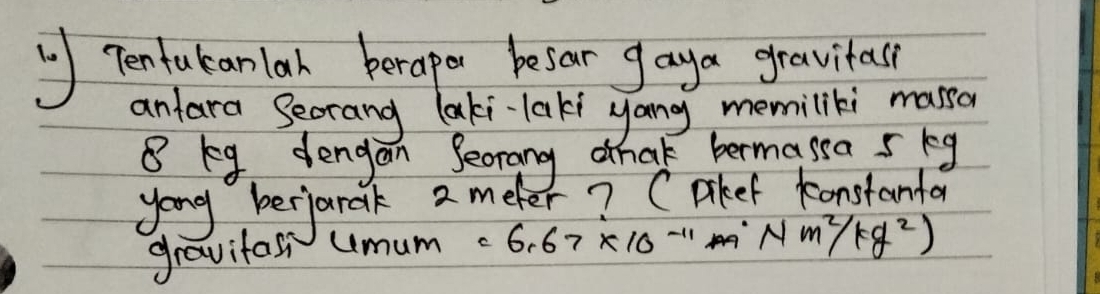 1.) Tentukanlah berapa besar gaya gravitasi
antara Seorang laki-laki yang memiliki massa
8 kg dengan Seorang anak bermassa 5 kg
yang berjarak 2 meter ? ( Diket konstanta
gravitasi umum = 6,67 × 10⁻¹¹ N m²/kg²)